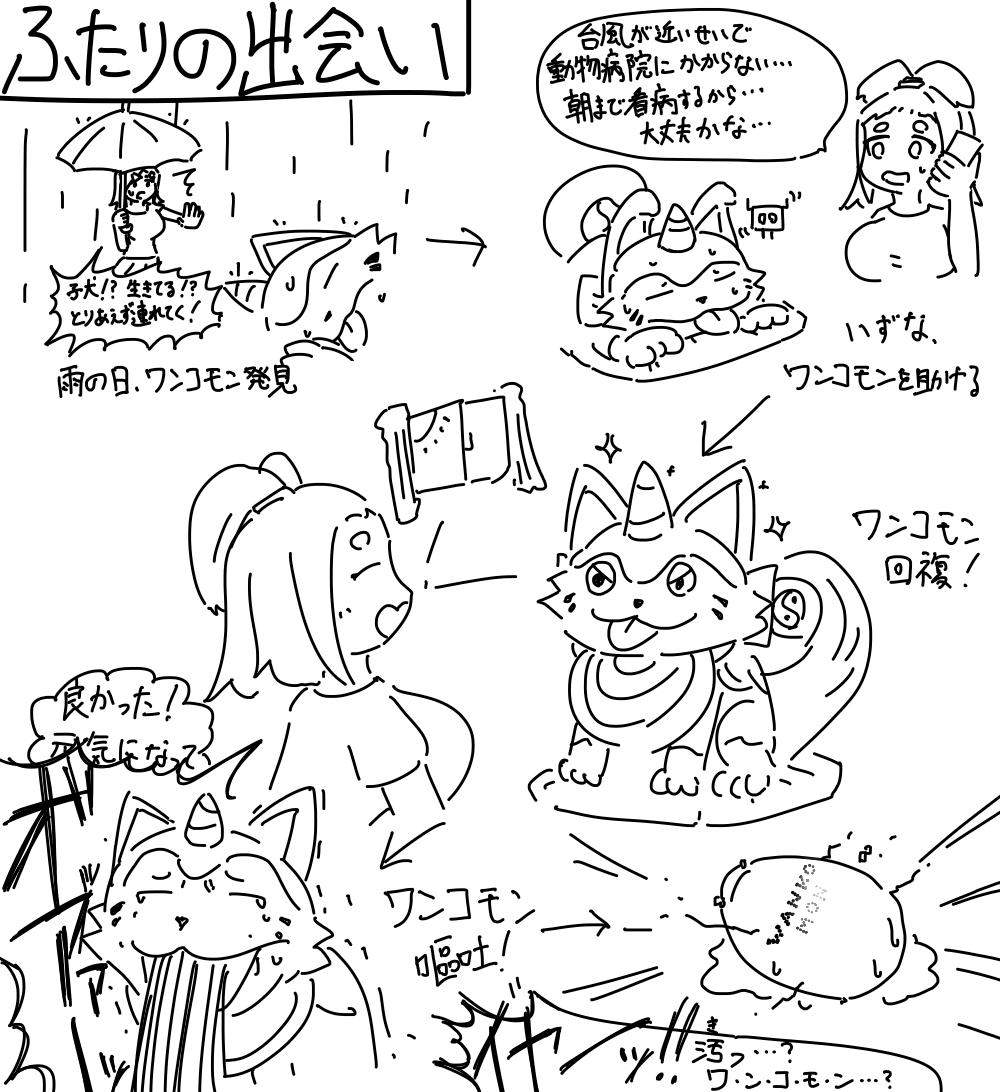 ふたりの出会い
台風が近いせいで
動物病院にかからない…
朝まで看病するから…
大丈夫かな…
子犬!?生きてる!?
とりあえず連れてく!
雨の日、ワンコモン発見
いずな、
ワンコモンを助ける
ワンコモン
回復!
良かった!
元気になって
ワンコモン
嘔吐!
WANKO
MON
き
汚っ…?
ワ・ン・コ・モ・ン…?